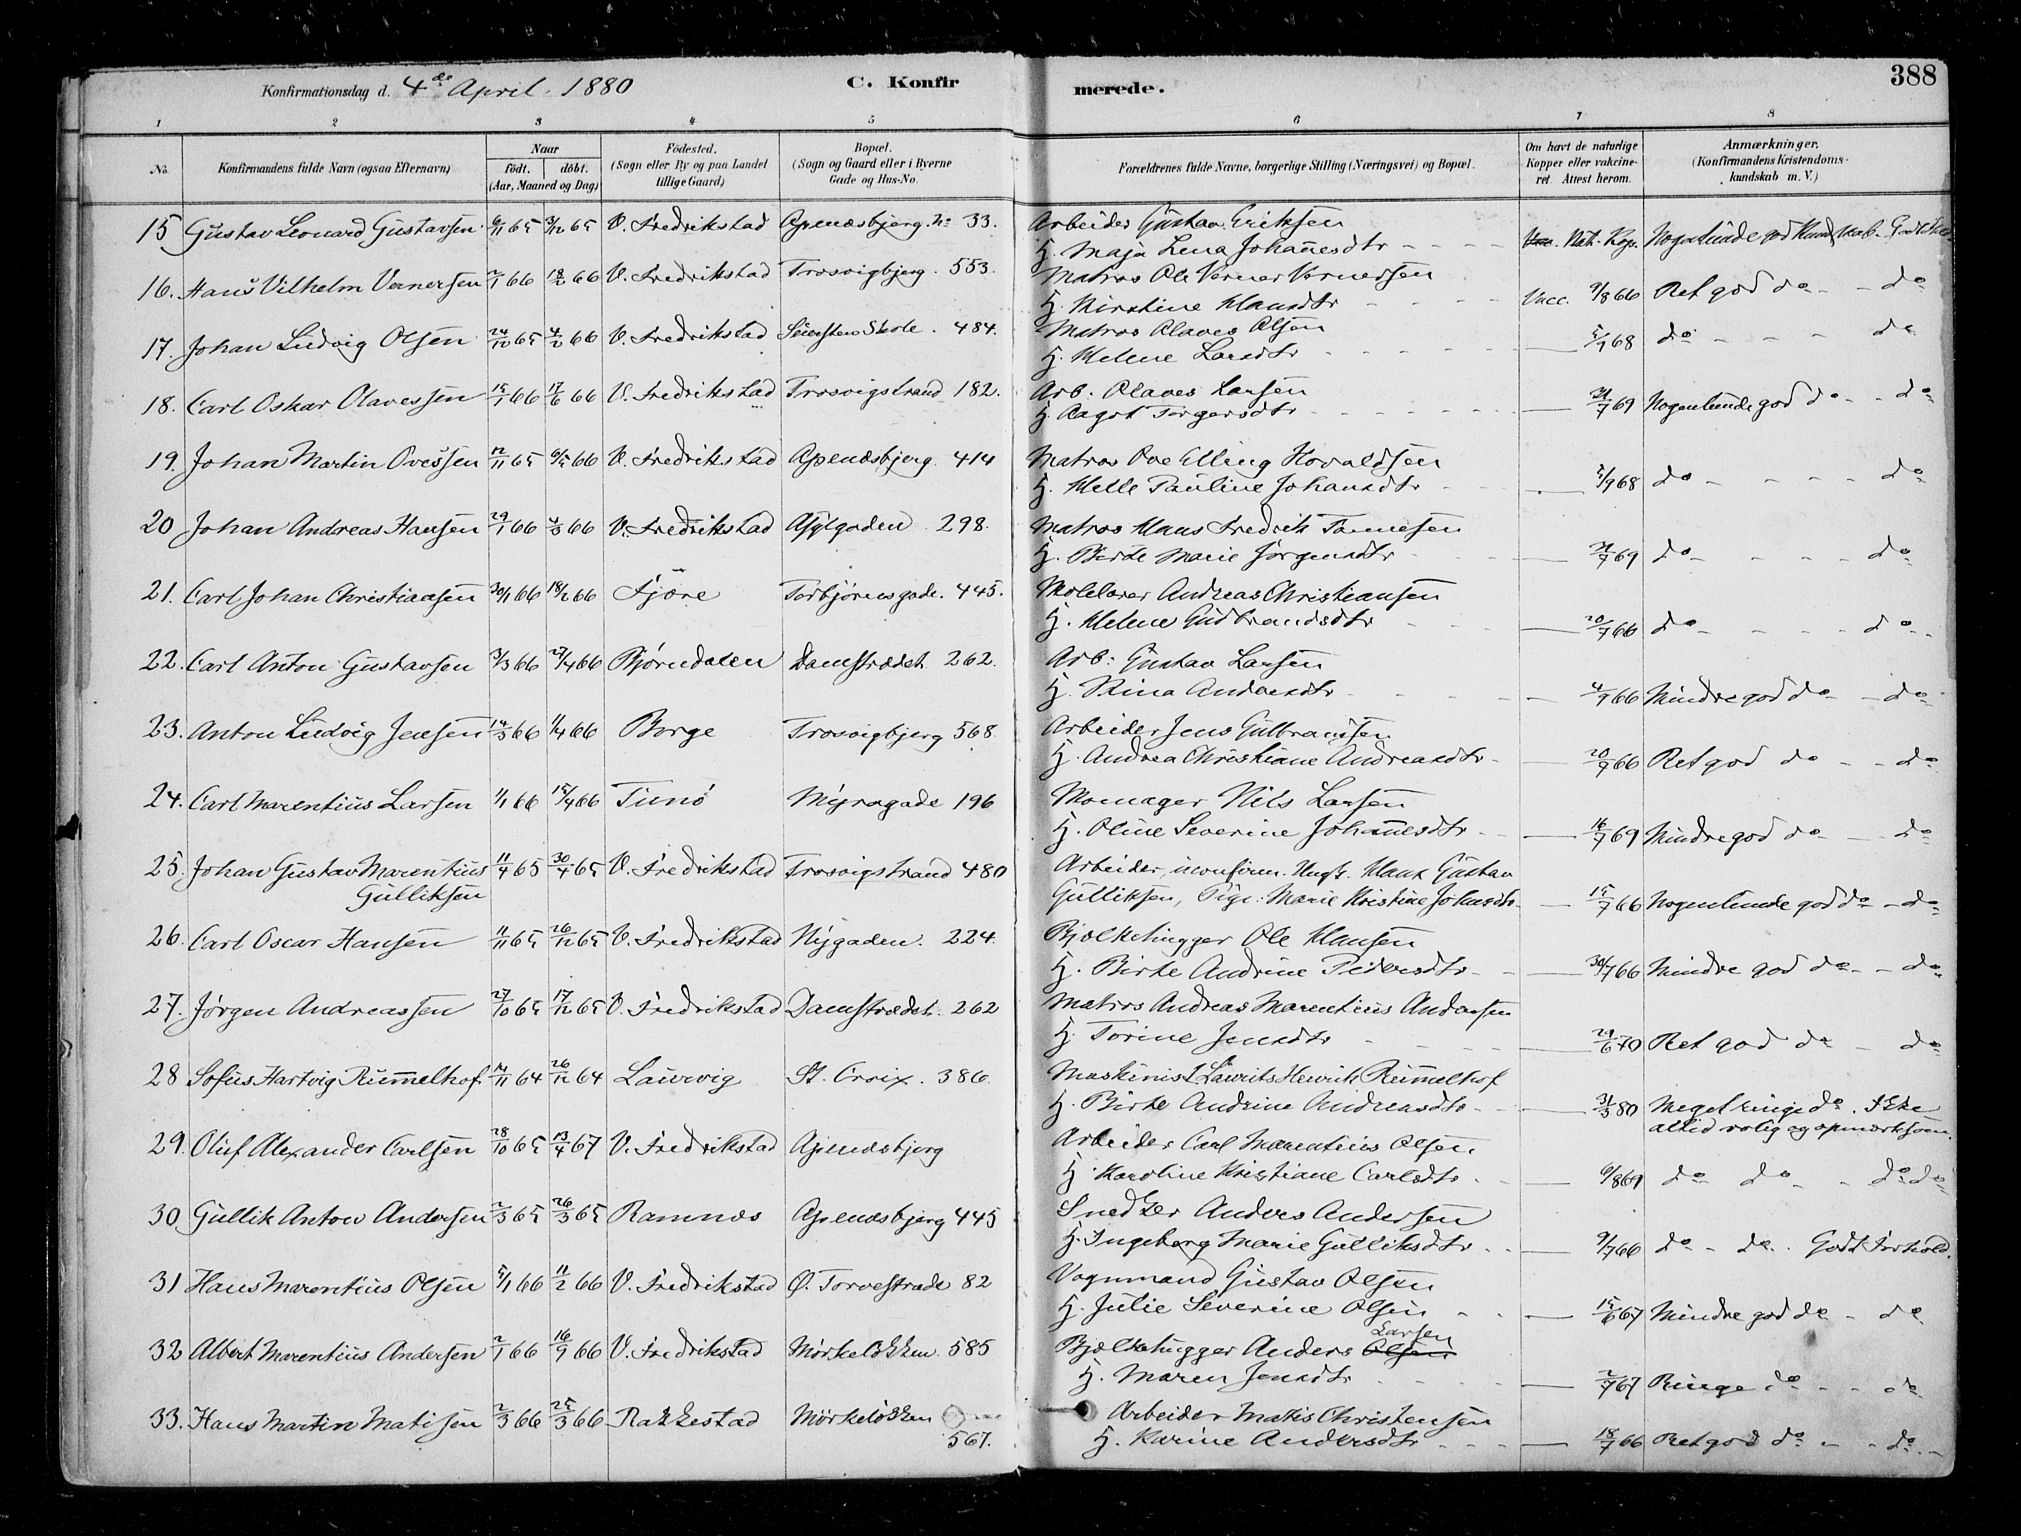 Konfirmationsdag d. 4de April 1880 C. Konfir merede. 388
1 2 3 4 5 6 7 8
No. Konfirmandens fulde Navn (ogsaa Efternavn) Naar født. døbt. (Aar, Maaned og Dag) Fødested. (Sogn eller By og paa Landet tillige Gaard) Bopæl. (Sogn og Gaard eller i Byerne Gade og Hus-No. Forældrenes fulde Navne, borgerlige Stilling (Næringsvei) og Bopæl. Om havt de naturlige Kopper eller vakcineret. Attest herom. Anmærkninger. (Konfirmandens Kristendomskundskab m. V.)
15 Gustav Leonard Gustavsen 6/11 65 3/12 65 V. Fredrikstad Apenæsbjerg. No 33. Arbeider Gustav Eriksen
H. Maja Lena Johannesdtr Nat. Kop. Nogenlunde god Kundskab.
16. Hans Vilhelm Vernersen 2/1 66 18/2 66 V. Fredrikstad Trosvigbjerg. 553. Matros Ole Verner Vernersen
H. Kirstine Hansdtr Vacc. 9/8 66 Ret god do do
17. Johan Ludvig Olsen 24/10 65 4/2 66 V. Fredrikstad Skole. 484. Matros Olaves Olsen
H. Helene Larsdtr 5/9 68 do do
18. Carl Oskar Olavessen 15/1 66 17/6 66 V. Fredrikstad Trosvigstrand 182. Arb. Olaves Larsen
H. Aagot Torgersdtr 31/7 69 Nogenlunde god do do
19. Johan Martin Ovessen 12/11 65 6/5 66 V. Fredrikstad Apenæsbjerg 414 Matros Ove Elling Hovaldsen
H. Helle Pauline Johansdtr 5/9 68 do do
20 Johan Andreas Hansen 29/1 66 4/3 66 V. Fredrikstad Asylgaden 298. Matros Hans Fredrik Tønnesen
H. Berte Marie Jørgensdtr 31/7 69 do do
21. Carl Johan Christiansen 30/1 66 18/2 66 Tjöre Torbjörnsgade. 445. Andreas Christiansen
H. Helene Gudbrandsdtr 20/7 66 do do
22. Carl Anton Gustavsen 3/3 66 27/4 66 Bjørndalen Damstrædet 262. Arb: Gustav Larsen
H. Stina Andersdtr 4/9 66 Mindre god do do
23. Anton Ludvig Jensen 14/3 66 1/4 66 Borge Trosvigbjerg 568. Arbeider Jens Gulbransen
H. Andrea Christiane Andreasdtr 20/9 66 Ret god do do
24. Carl Marentius Larsen 1/1 66 15/4 66 Tunö Myragade 196 Skomager Nils Larsen
H. Oline Severine Johannesdtr 16/7 69 Mindre god do do
25. Johan Gustav Marentius 11/4 65 30/4 65 V. Fredrikstad Trosvigstrand 480 Arbeider, Ungk. Hans Gustav
Gulliksen Gulliksen, Pige: Marie Kristine Johnsdtr 15/7 66 Nogenlunde god do do
26. Carl Oscar Hansen 11/11 65 26/12 65 V. Fredrikstad Nygaden. 224. Bjælkehugger Ole Hansen
H. Birte Andrine Pedersdtr 30/7 66 Mindre god do do
27. Jørgen Andreassen 27/10 65 17/12 65 V. Fredrikstad Damstrædet. 262 Matros Andreas Marentius Andersen
H. Torine Jensdtr 29/6 70 Ret god do do
28 Sofus Hartvig Rummelhof 14/11 64 26/12 64 Laurvig St. Croix. 386. Maskinist Laurits Henrich Rummelhof
H. Birte Andrine Andreasdtr 31/3 80 Meget ringe do. Ikke
altid rolig og opmærksom.
29. Oluf Alexander Carlsen 28/10 65 13/4 67 V. Fredrikstad Apenæsbjerg Arbeider Carl Marentius Olsen.
H. Karoline Kristiane Carlsdtr 9/8 69 do do do do
30 Gullik Anton Andersen 2/3 65 26/3 65 Ramnæs Apenæsbjerg 445 Snedker Anders Andersen
H. Ingeborg Marie Gulliksdtr 9/7 66 do do. Godt Forhold.
31 Hans Marentius Olsen 5/1 66 11/2 66 V. Fredrikstad Ø. Torvestrade 82 Vognmand Gustav Olsen
H. Julie Severine Olsen 15/6 67 Mindre god do do
32 Albert Marentius Andersen 2/1 66 16/9 66 V. Fredrikstad Mørkeløkken. 585 Bjælkehugger Anders Olsen Larsen
H. Maren Jensdtr 2/7 67 Ringe do do
33. Hans Martin Matisen 2/3 66 25/3 66 Rakkestad Mørkeløkken 567. Arbeider Matis Christensen
H. Karine Andersdtr 18/7 66 Ret god do do